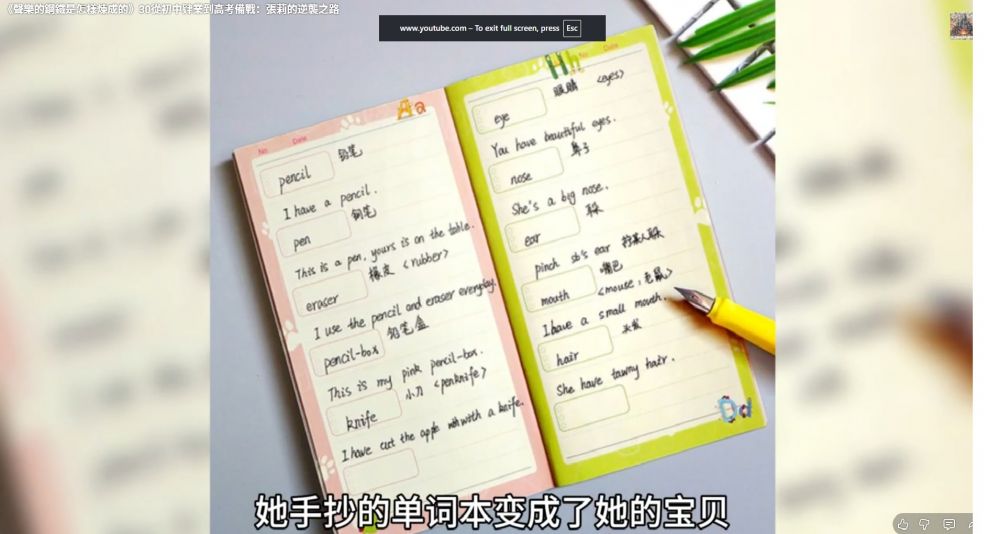 《聲樂的鋼鐵是怎樣煉成的》30從初中肄業到高考備戰：張莉的逆襲之路
www.youtube.com – To exit full screen, press Esc
Aa
No. Date
pencil 铅笔
I have a pencil.
pen 钢笔
This is a pen, yours is on the table.
eraser 橡皮 <rubber>
I use the pencil and eraser everyday.
pencil-box 铅笔盒
This is my pink pencil-box.
knife 小刀 <penknife>
I have cut the apple with a knife.
Hh
No. Date
eye 眼睛 <eyes>
You have beautiful eyes.
nose 鼻子
She's a big nose.
ear 耳朵
pinch sb's ear 拧某人耳朵
mouth 嘴巴 <mouse:老鼠>
I have a small mouth.
hair 头发
She have tawny hair.
Dd
她手抄的单词本变成了她的宝贝